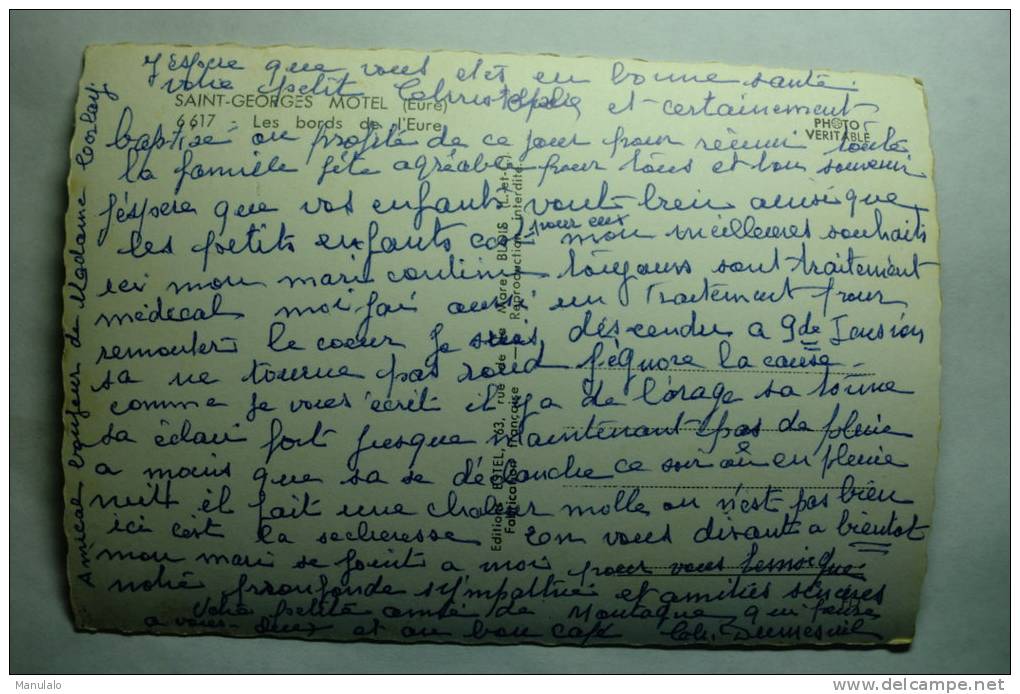 J'espere que vous etes en bonne santé.
votre petit Christophe et certainement
SAINT-GEORGES MOTEL (Eure)
6617 - Les bords de l'Eure
PHOTO
VERITABLE
baptisé on profité de ce jour pour réunir toute
la famille fête agréable pour tous et bon souvenir
j'éspere que vos enfants vont bien ainsi que
les petits enfants pour eux mon meilleures souhaits
ici mon mari continu toujours sont traitement
médical moi j'ai aussi un traitement pour
remonter le coeur je suis déscendu a 9 de Tension
sa ne tourne pas rond j'ignore la cause
comme je vous écrit il y a de l'orage sa tonne
sa éclair fort presque maintenant pas de pluie
a moins que sa se déclanche ce soir ou en pleine
nuit il fait une chaleur molle on n'est pas bien
ici c'est la sécheresse En vous disant a bientot
mon mari se joint a moi pour vous
notre proufonde sympathie et amitiés sincères
Votre petite amie de Montagne qui pense
a vous deux et au bon café Dumesnil
Amical bonjour de Madame
Editions POTEL, 163, rue de la Mare BLOIS (L.-et-C.)
Fabrication française — Reproduction interdite.
Manulalo
www.delcampe.net